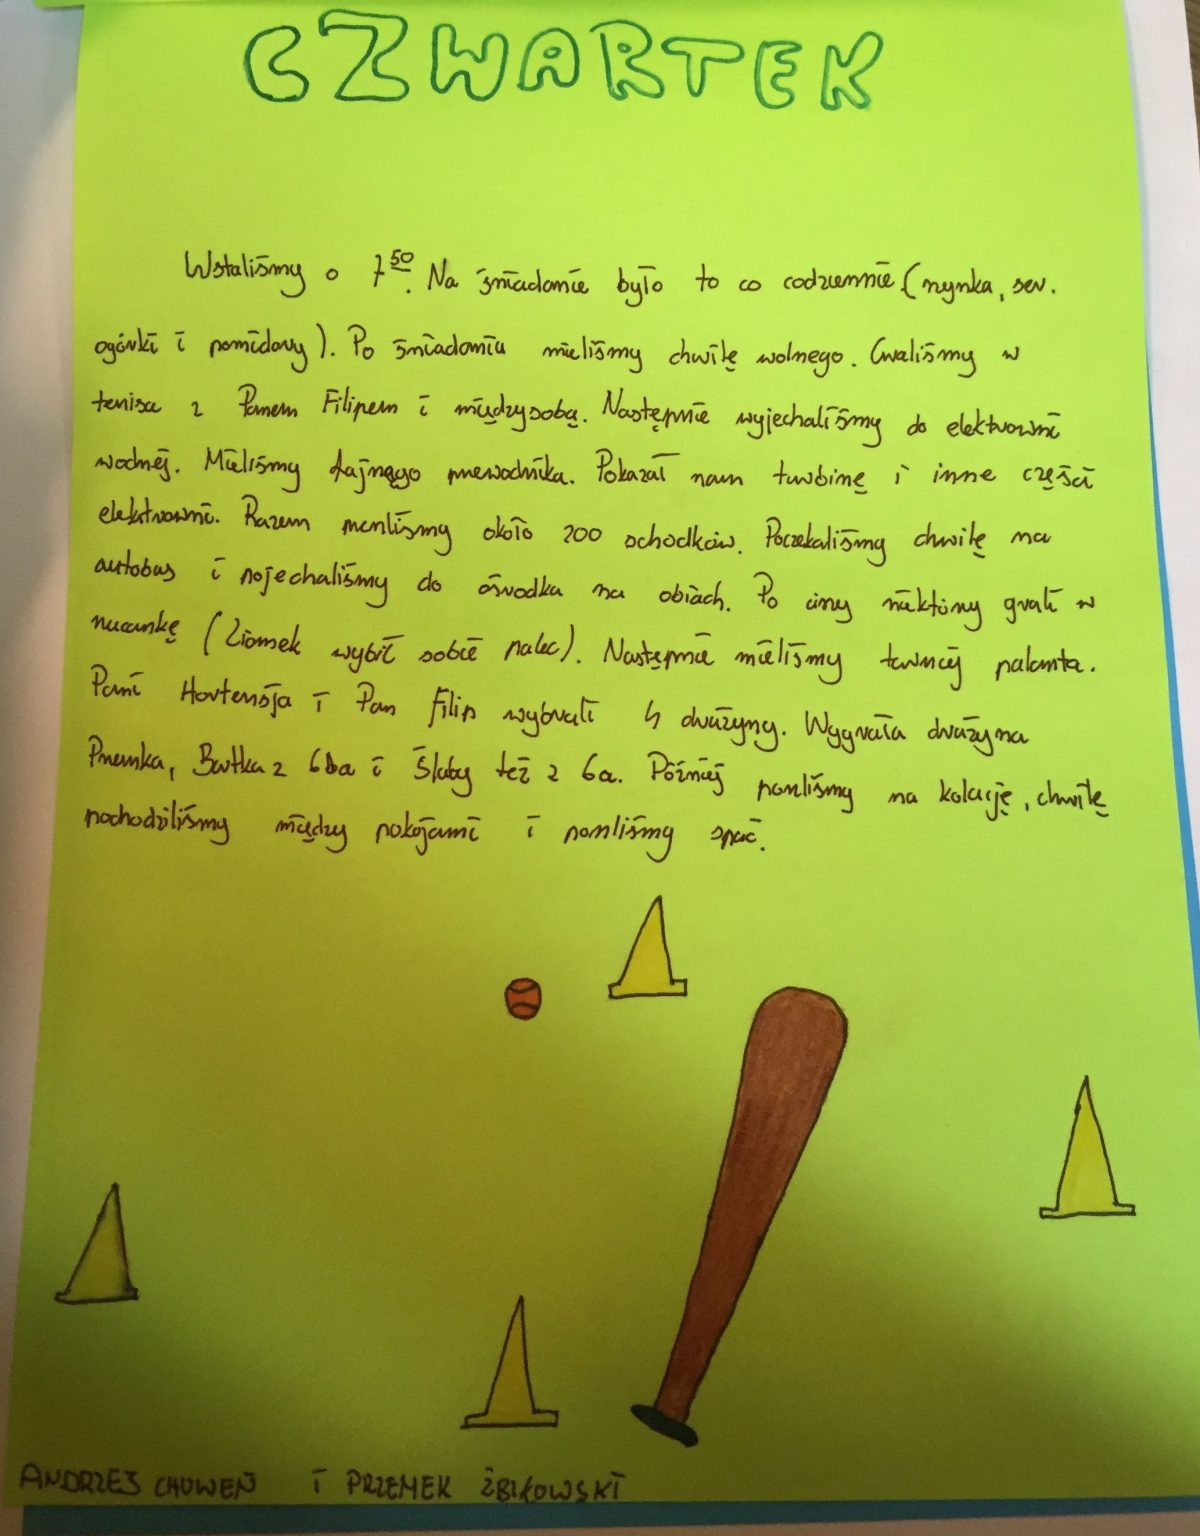 CZWARTEK
Wstaliśmy o 7⁵⁰. Na śniadanie było to co codziennie (szynka, ser.
ogórki i pomidory). Po śniadaniu mieliśmy chwilę wolnego. Graliśmy w
tenisa z Panem Filipem i międzysobą. Następnie wyjechaliśmy do elektrowni
wodnej. Mieliśmy fajnego przewodnika. Pokazał nam turbinę i inne części
elektrowni. Razem przeszliśmy około 200 schodków. Poczekaliśmy chwilę na
autobus i pojechaliśmy do ośrodka na obiach. Po ciszy niektórzy grali w
ruczankę (Ziomek wybił sobie palec). Następnie mieliśmy turniej palanta.
Pani Hortensja i Pan Filip wybrali 4 drużyny. Wygrała drużyna
Przemka, Bartka z 6ba i Śluby też z 6a. Później poszliśmy na kolację, chwilę
pochodziliśmy między pokojami i poszliśmy spać.
ANDRZEJ CHUWEŃ I PRZEMEK ŻBIKOWSKI